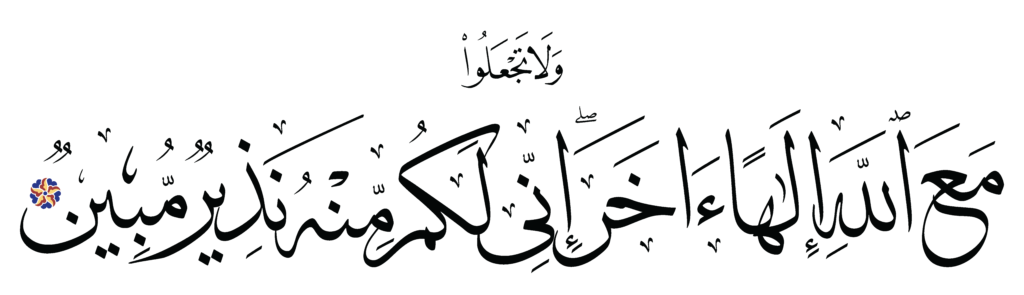 وَلَا تَجْعَلُوا۟
مَعَ ٱللَّهِ إِلَٰهًا ءَاخَرَ ۖ إِنِّى لَكُم مِّنْهُ نَذِيرٌ مُّبِينٌ